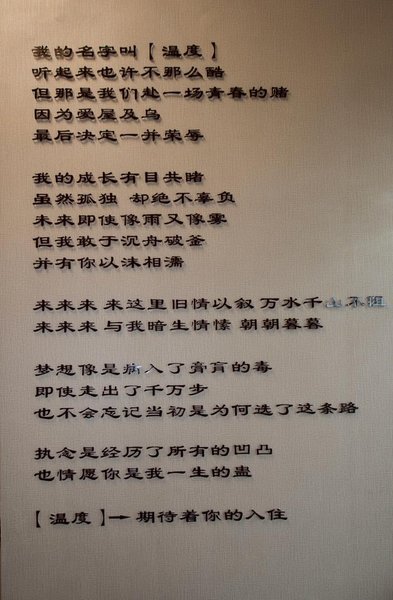 我的名字叫【温度】
听起来也许不那么酷
但那是我们赴一场青春的赌
因为爱屋及乌
最后决定一并荣辱
我的成长有目共睹
虽然孤独 却绝不辜负
未来即使像雨又像雾
但我敢于沉舟破釜
并有你以沫相濡
来来来 来这里旧情以叙 万水千山不阻
来来来 与我暗生情愫 朝朝暮暮
梦想像是病入了膏肓的毒
即使走出了千万步
也不会忘记当初是为何选了这条路
执念是经历了所有的凹凸
也情愿你是我一生的蛊
【温度】→期待着你的入住